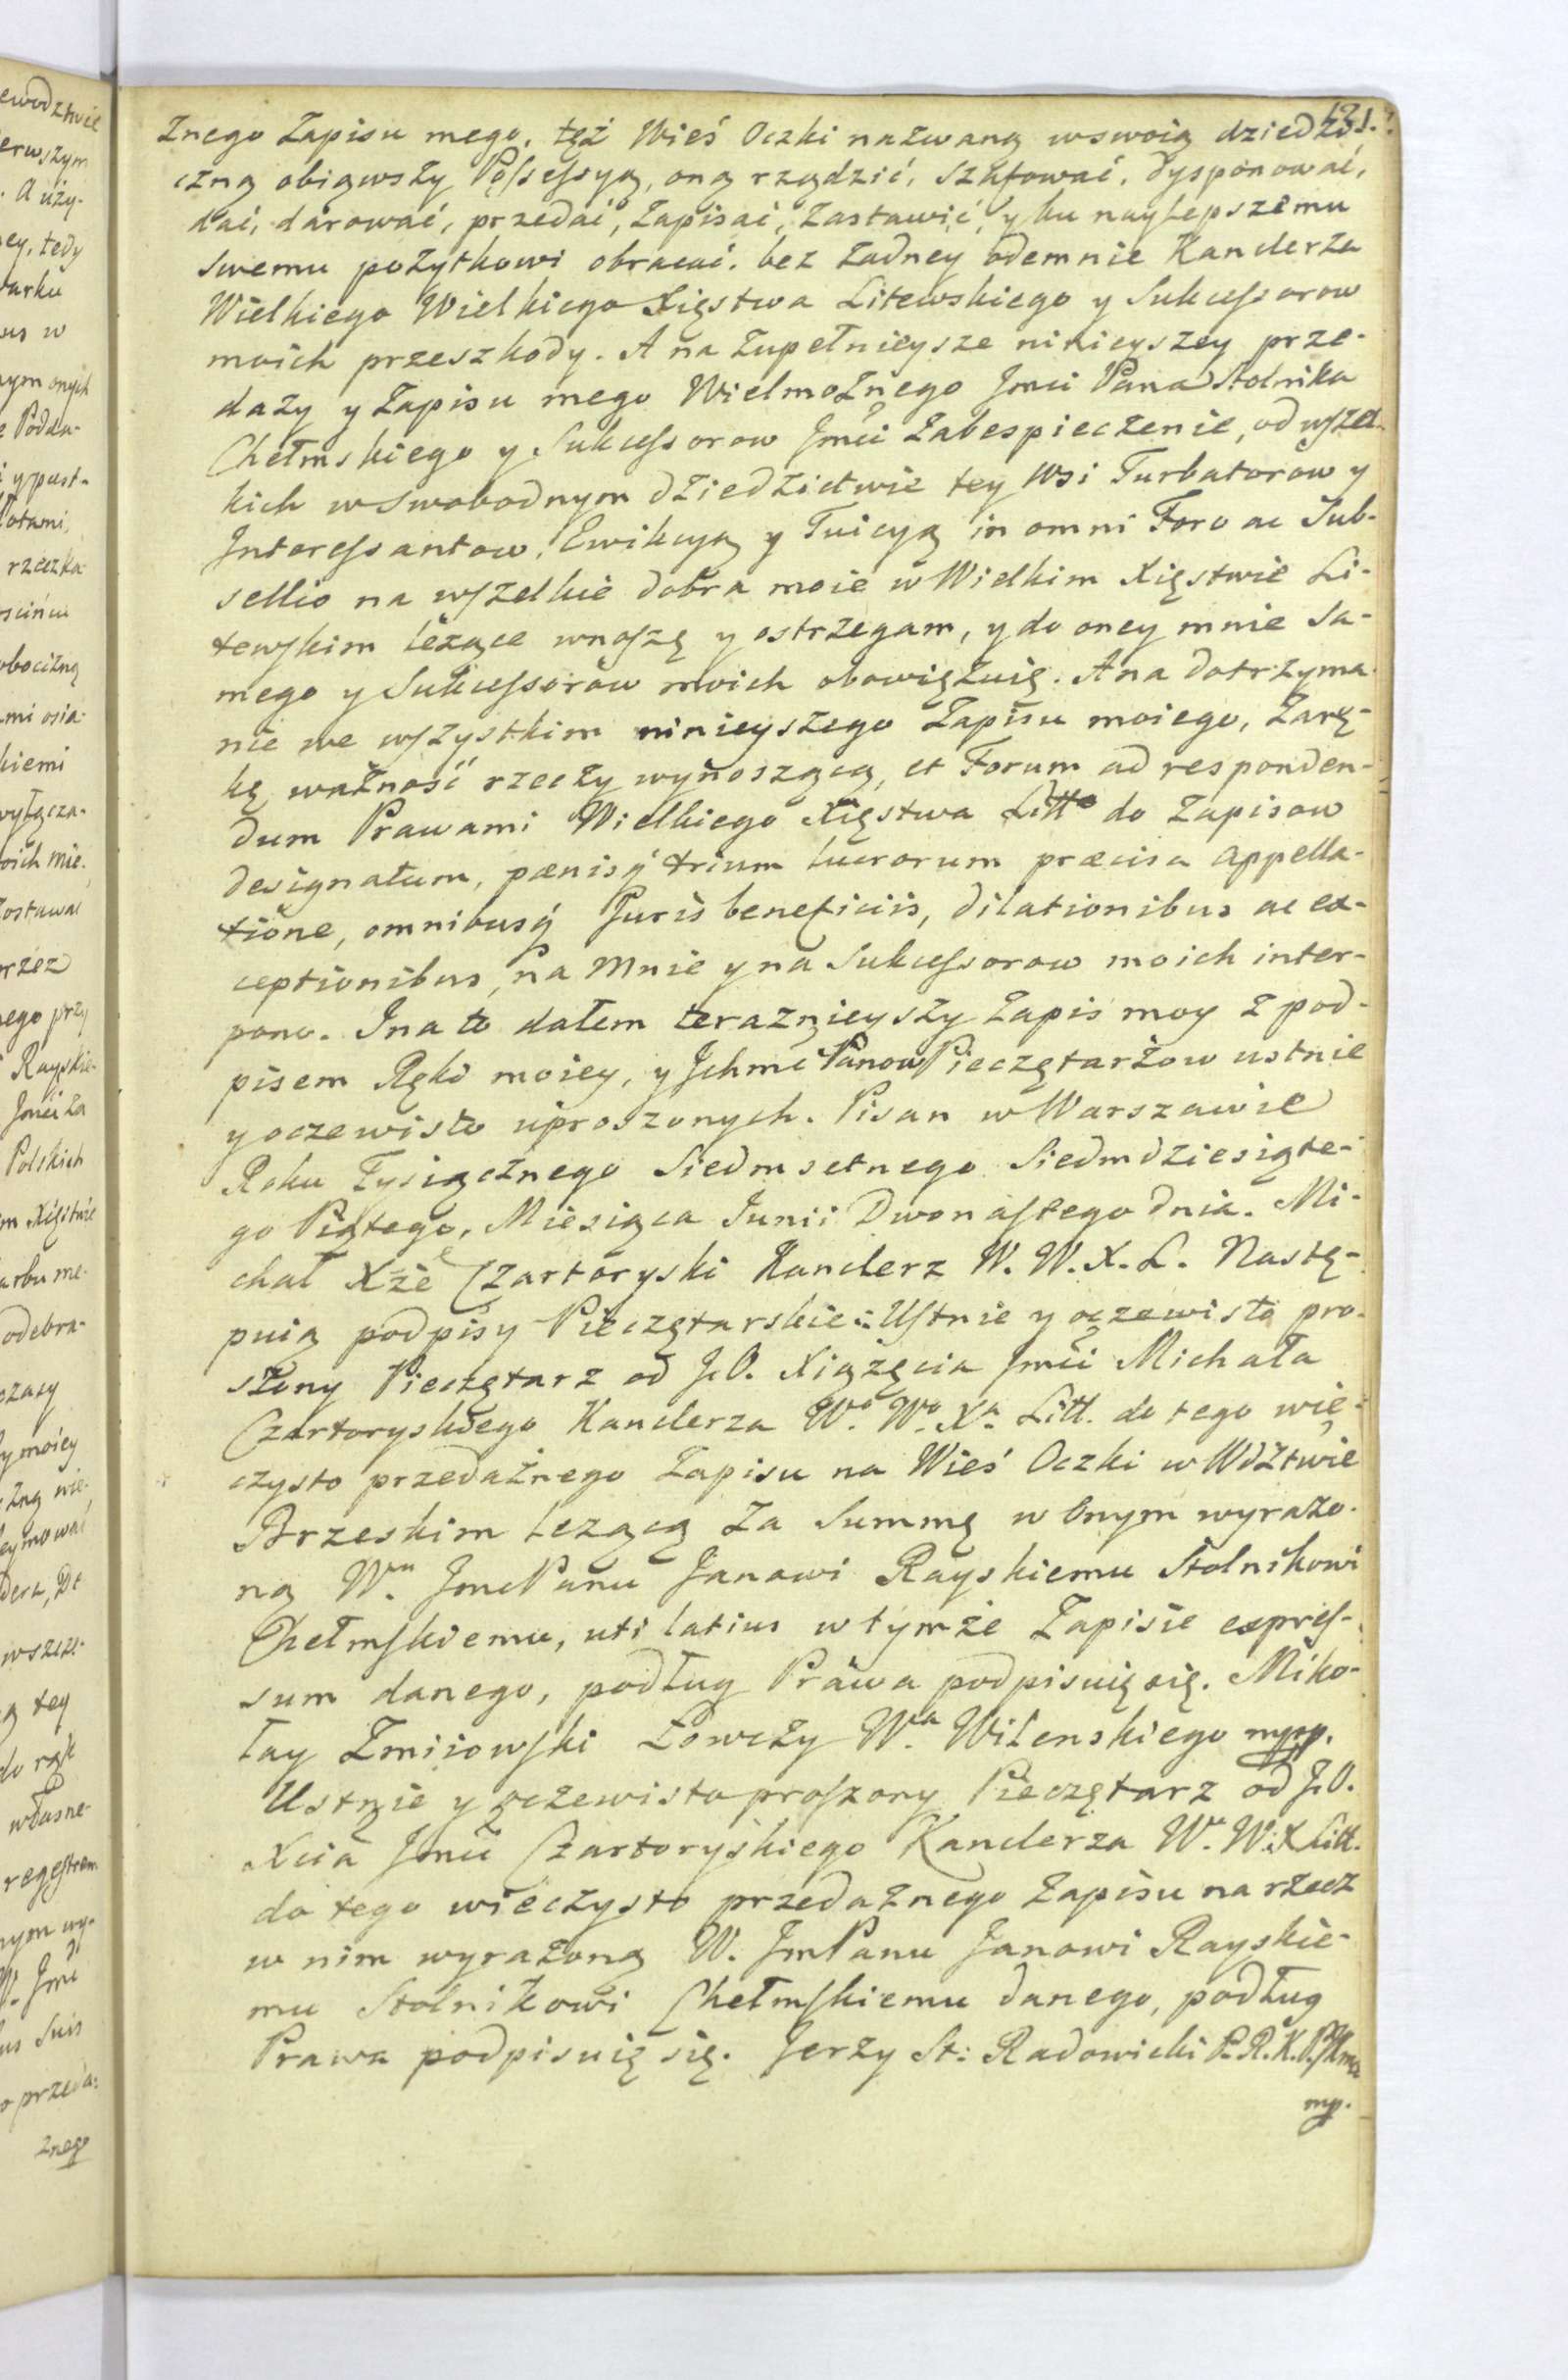 121.
żnego Zapisu mego, tęż Wieś Oczki nazwaną w swoią dziedzi-
czną obiąwszy Possessyą, oną rządzić, szafować, dysponować,
dać, darować, przedać, zapisać, zastawić, y ku naylepszemu
swemu pożytkowi obracać, bez żadney odemnie Kanclerza
Wielkiego Wielkiego Xięstwa Litewskiego y Sukcessorow
moich przeszkody. A na zupełnieysze ninieyszey prze-
daży y Zapisu mego Wielmożnego Jmci Pana Stolnika
Chełmskiego y Sukcessorow Jmći zabespieczenie, od wszel-
kich w swobodnym dziedzictwie tey Wsi Turbatorow y
Interessantow, Ewikcyą y Tuicyą in omni Foro ac Sub-
sellio na wszelkie dobra moie w Wielkim Xięstwie Li-
tewskim leżące wnoszę y ostrzegam, y do oney mnie sa-
mego y Sukcessorów moich obowięzuię. A na dotrzyma-
nie we wszystkim ninieyszego Zapisu moiego, Zarę-
kę ważność rzeczy wynoszącą, et Forum ad responden-
dum Prawami Wielkiego Xięstwa Litto do Zapisow
designatum, pænisq́ trium lucrorum præcisa appella-
tione, omnibusq́ Juris beneficiis, dilationibus ac ex-
ceptionibus, na mnie y na Sukcessorow moich inter-
pono. I na to dałem teraznieyszy Zapis moy z pod-
pisem Ręki moiey, y Ichmć Panow Pieczętarzow ustnie
y oczewisto uproszonych. Pisan w Warszawie
Roku Tysiącznego Siedmsetnego Siedmdziesiąte-
go Piątego, Miesiąca Junii Dwonastego dnia. Mi-
chał Xże Czartoryski Kanclerz W. W. X. L. Nastę-
puią podpisy Pieczętarskie: Ustnie y oczewisto pro-
szony Pieczętarz od J.O. Xiążęcia Jmći Michała
Czartoryskiego Kanclerza Wo. Wo. Xa. Litt. do tego wie-
czysto przedażnego Zapisu na Wieś Oczki w Wdztwie
Brzeskim leżącą za Summę w onym wyrażo-
ną Wu. Jmć Panu Janowi Rayskiemu Stolnikowi
Chełmskiemu, uti latius w tymże Zapisie expres-
sum danego, podług Prawa podpisuię się. Miko-
łay Zmiiowski Łowczy Wa. Wilenskiego mpp.
Ustnie y oczewisto proszony Pieczętarz od J.O.
Xcia Jmći Czartoryskiego Kanclerza W. W. X Litt.
do tego wieczysto przedażnego Zapisu na rzecz
w nim wyrażoną W. Jm Panu Janowi Rayskie-
mu Stolnikowi Chełmskiemu danego, podług
Prawa podpisuię się. Jerzy St: Radowicki P. R. K.
mp.